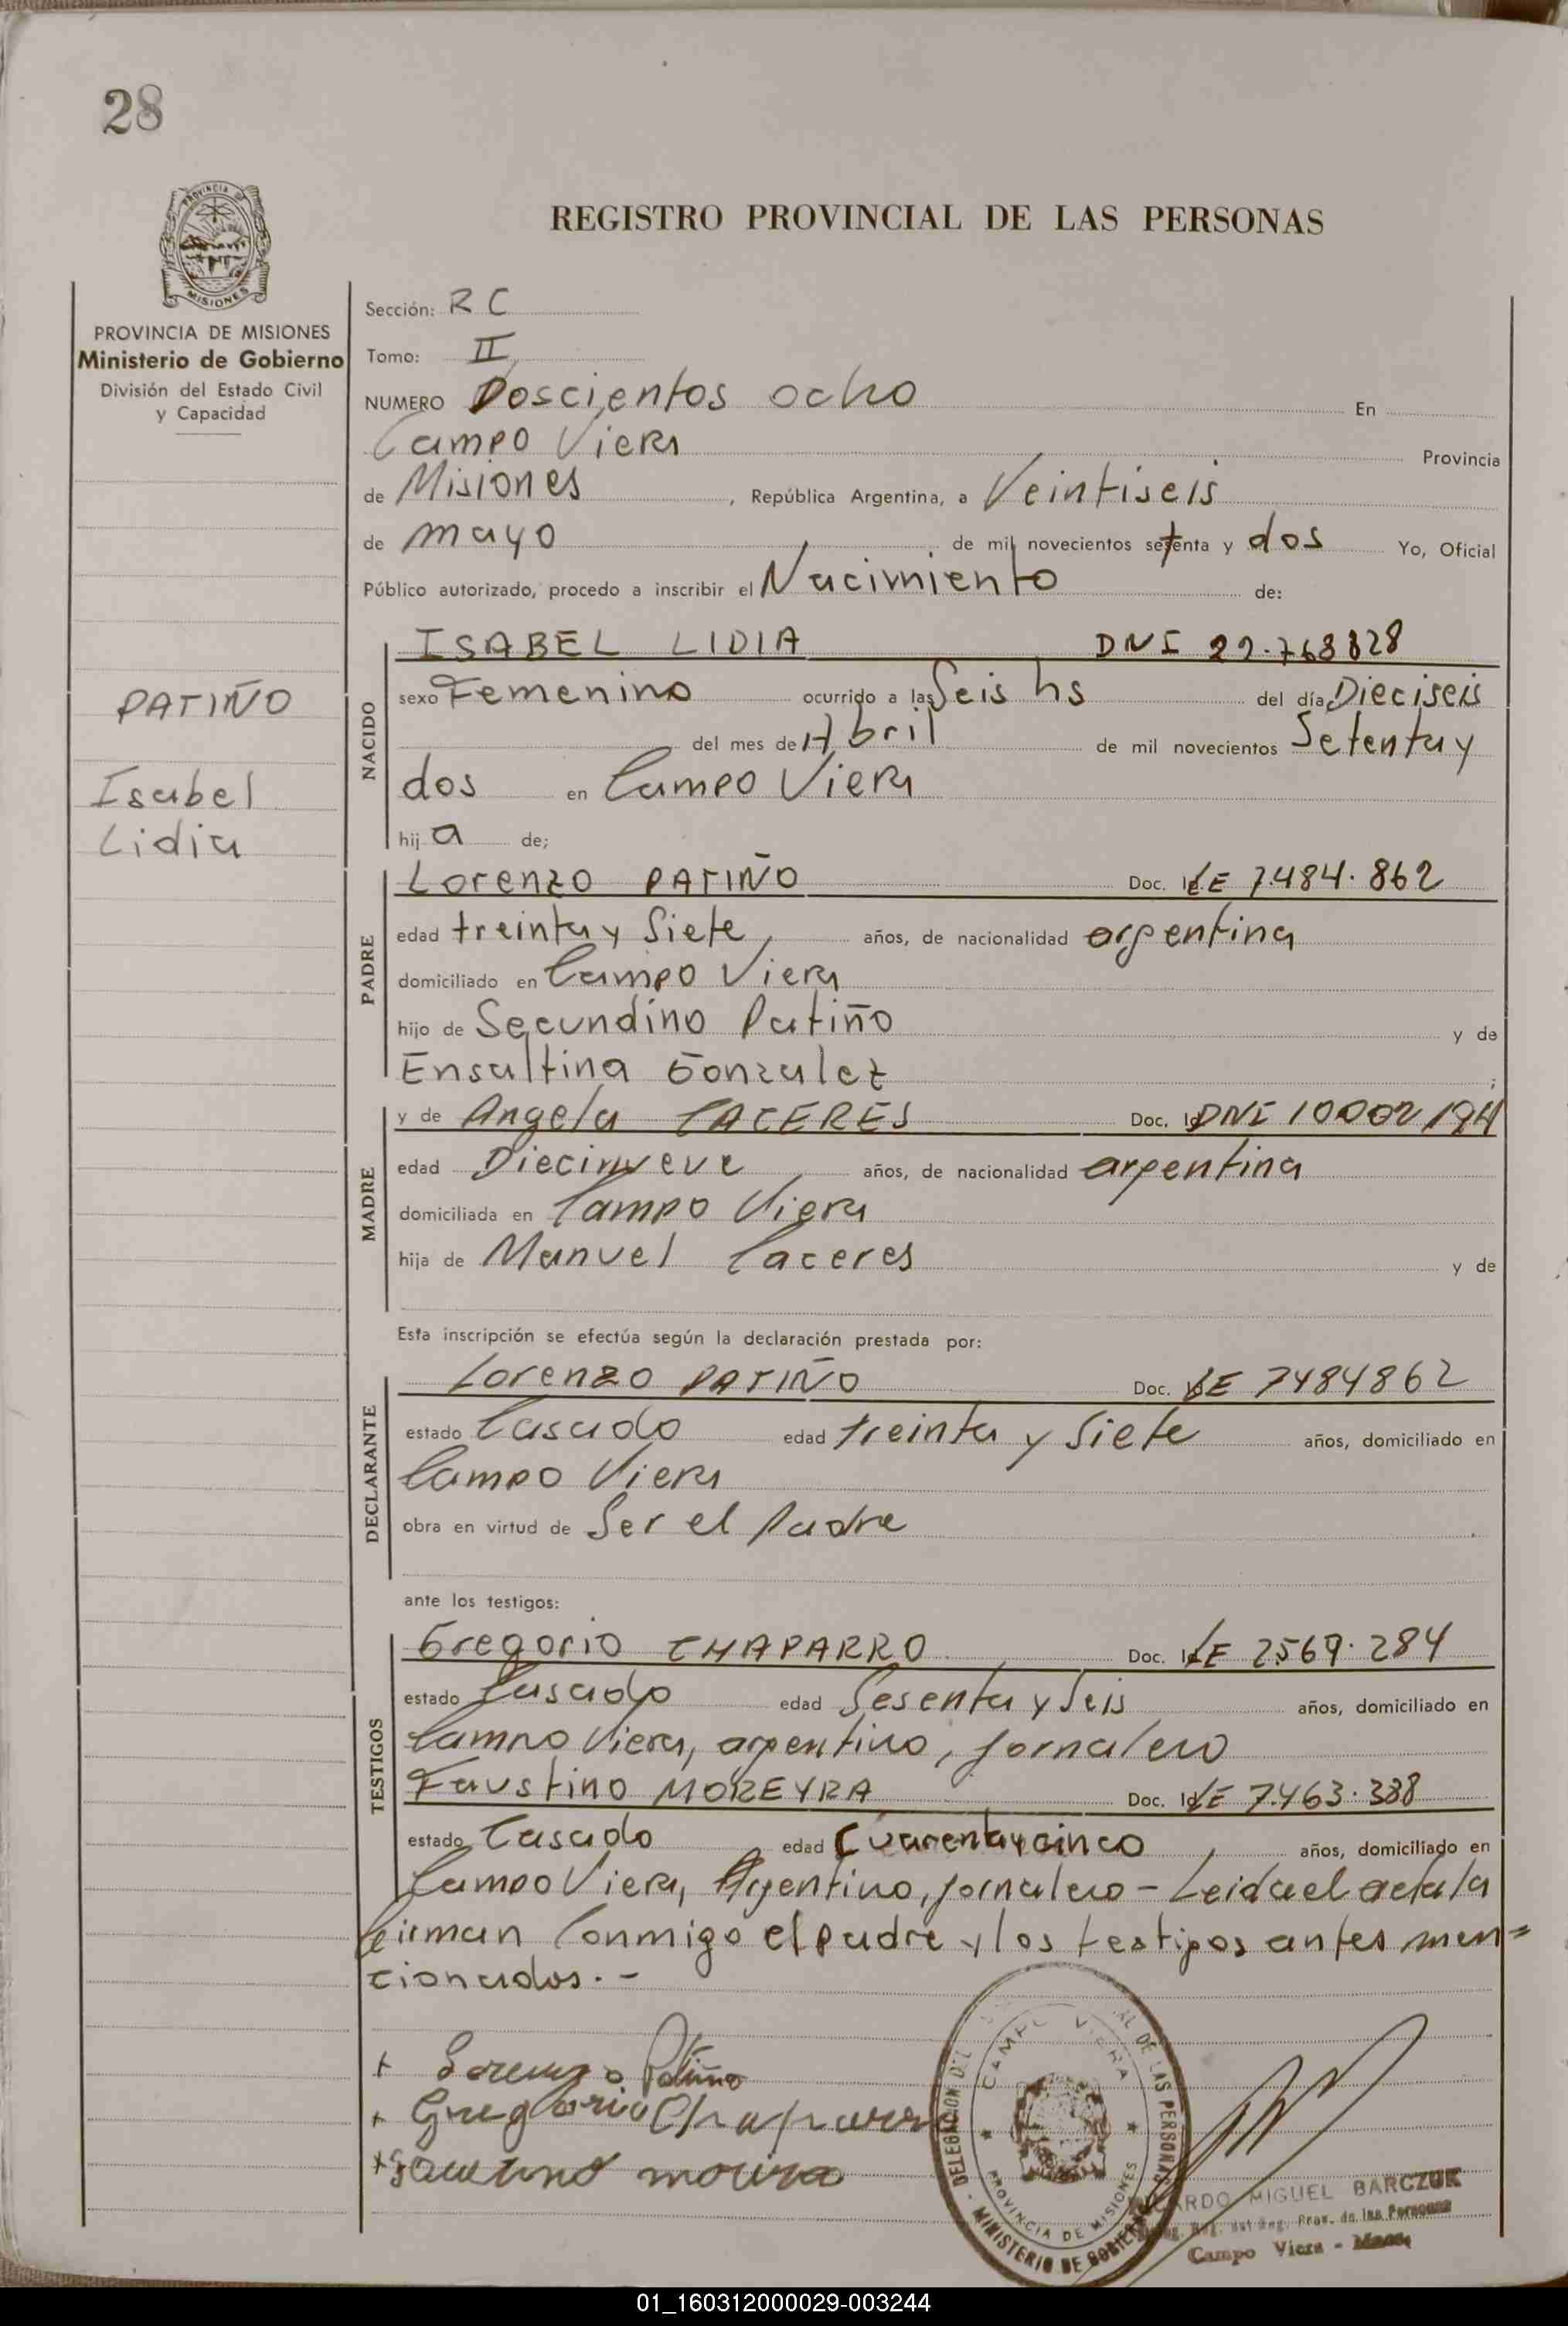 28
PROVINCIA DE
MISIONES
REGISTRO PROVINCIAL DE LAS PERSONAS
PROVINCIA DE MISIONES
Ministerio de Gobierno
División del Estado Civil
y Capacidad
PATIÑO
Isabel
Lidia
Sección: R C
Tomo: II
NUMERO Doscientos ocho En
Campo Viera Provincia
de Misiones, República Argentina, a Veintiseis
de mayo de mil novecientos setenta y dos Yo, Oficial
Público autorizado, procedo a inscribir el Nacimiento de:
NACIDO
ISABEL LIDIA DNI 22.768828
sexo Femenino ocurrido a las Seis hs del día Dieciseis
del mes de Abril de mil novecientos Setenta y
dos en Campo Viera
hija de;
PADRE
Lorenzo PATIÑO Doc. LE 7.484.862
edad treinta y Siete, años, de nacionalidad argentina
domiciliado en Campo Viera
hijo de Secundino Patiño y de
Ensaltina Gonzalez;
MADRE
y de Angela CACERES Doc. Id DNI 10002194
edad Diecinueve años, de nacionalidad argentina
domiciliada en Campo Viera
hija de Manuel Caceres y de
Esta inscripción se efectúa según la declaración prestada por:
DECLARANTE
Lorenzo PATIÑO Doc. LE 7484862
estado Casado edad treinta y Siete años, domiciliado en
Campo Viera
obra en virtud de Ser el Padre
ante los testigos:
TESTIGOS
Gregorio CHAPARRO Doc. Id LE 2569.284
estado Casado edad Sesenta y Seis años, domiciliado en
Campo Viera, argentino, jornalero
Faustino MOREYRA Doc. Id LE 7.463.338
estado Casado edad Cuarenta y cinco años, domiciliado en
Campo Viera, Argentino, jornalero - Leida el acta la
firman Conmigo el padre y los testigos antes men=
cionados.-
+ Lorenzo Patiño
+ Gregorio Chaparro
+ Faustino moreira
DELEGACION DEL DE LAS PERSONAS
CAMPO VIERA
PROVINCIA DE MISIONES
MINISTERIO DE GOBIERNO
RICARDO MIGUEL BARCZUK
Prov. de las Personas
Campo Viera - Mnes.
01_160312000029-003244